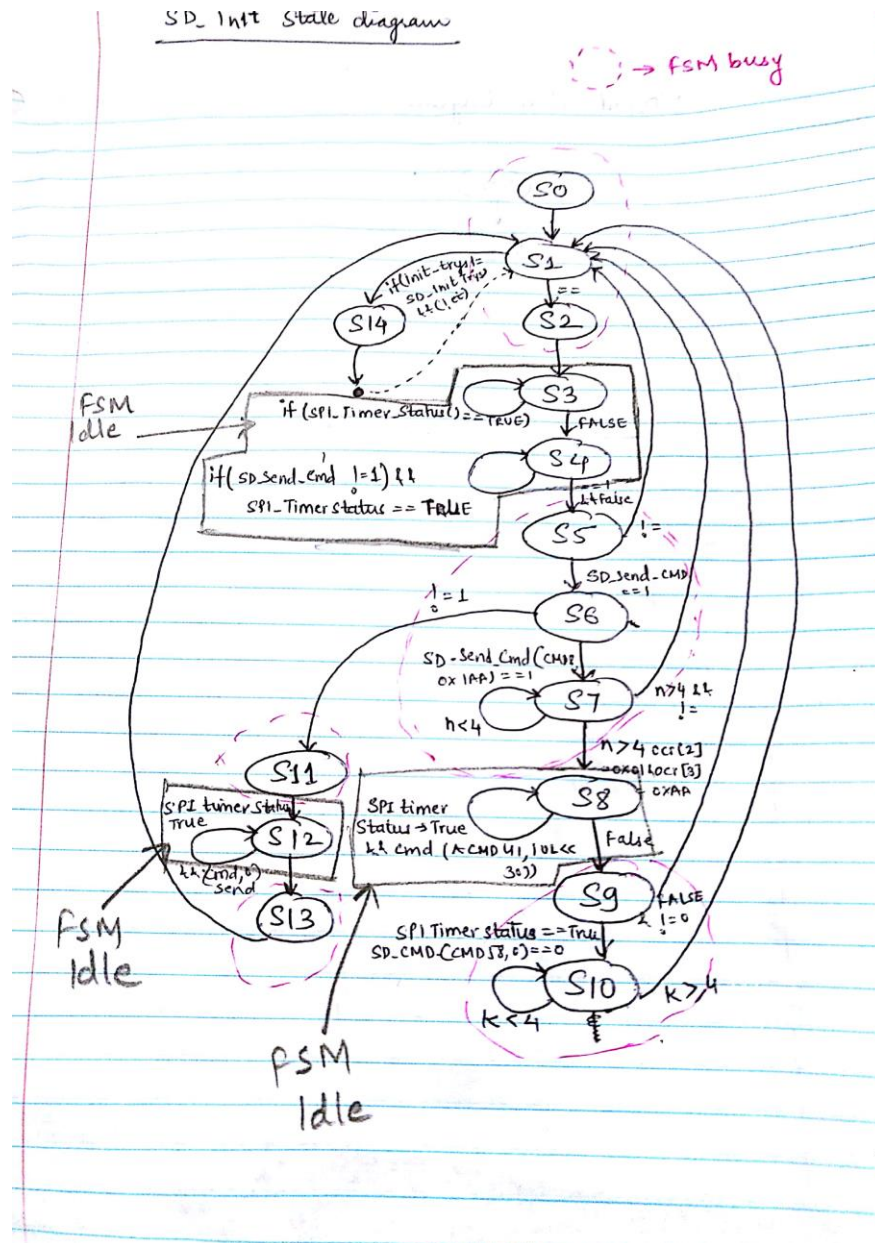 SD_Init State diagram
→ FSM busy
S0
S1
if(Init_trys !=
SD_Init Trys
==
S14
S2
FSM
Idle
S3
if (SPI_Timer_Status() == TRUE)
FALSE
S4
if(SD_Send_Cmd != 1) &&
SPI_Timer status == TRUE
==1
&& False
S5
!=
SD_Send_CMD
==1
! = 1
S6
SD_Send_Cmd(CMD8,
0x1AA) == 1
S7
n<4
n>4 &&
!=
n>4 ocr[2]
S11
0xAA
SPI timer status
True
SPI timer
Status → True
&& cmd (ACMD41, 1UL<<
30))
S8
False
S12
&& (cmd,0)
send
S9
FALSE
!=0
S13
FSM
Idle
SPI Timer status == True
SD_CMD(CMD58, 0) == 0
S10
K<4
K>,4
FSM
Idle